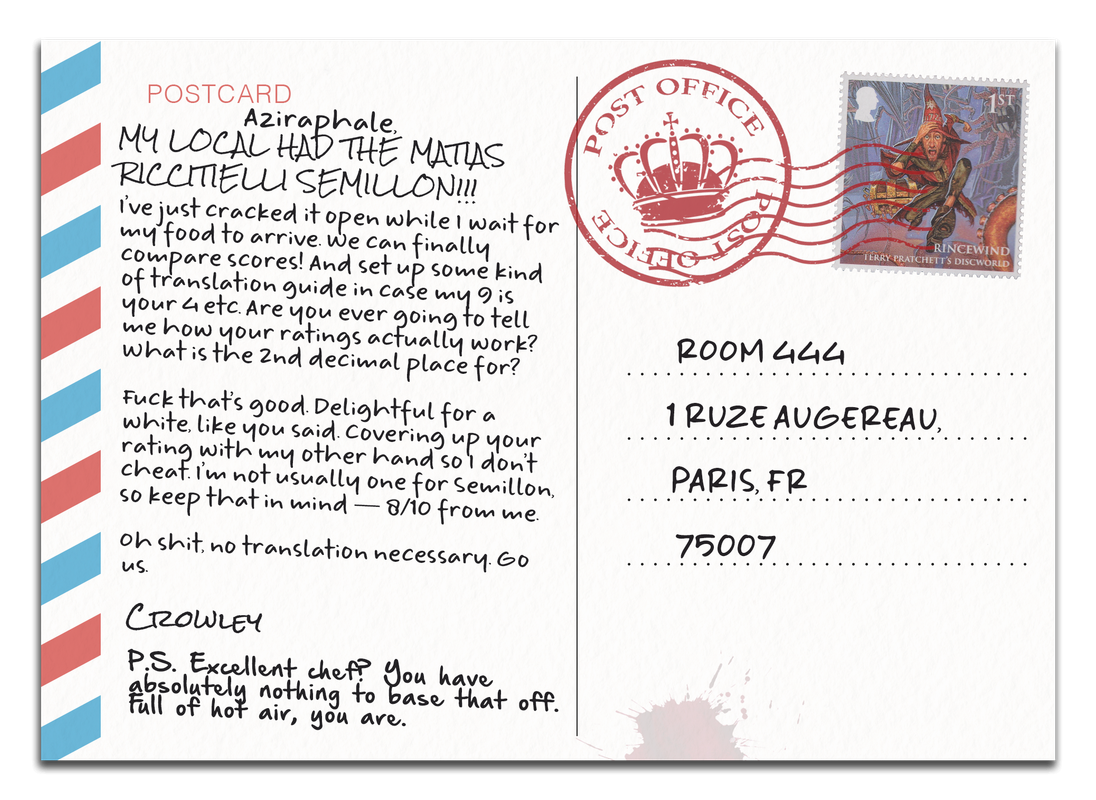 POSTCARD
Aziraphale,
MY LOCAL HAD THE MATIAS
RICCITIELLI SEMILLON!!!
I've just cracked it open while I wait for
my food to arrive. We can finally
compare scores! And set up some kind
of translation guide in case my 9 is
your 4 etc. Are you ever going to tell
me how your ratings actually work?
What is the 2nd decimal place for?
Fuck that's good. Delightful for a
white, like you said. Covering up your
rating with my other hand so I don't
cheat. I'm not usually one for Semillon,
so keep that in mind — 8/10 from me.
Oh shit, no translation necessary. Go
us.
CROWLEY
P.S. Excellent chef? You have
absolutely nothing to base that off.
Full of hot air, you are.
POST OFFICE
POST OFFICE
1ST
RINCEWIND
TERRY PRATCHETT'S DISCWORLD
ROOM 444
1 RUZE AUGEREAU,
PARIS, FR
75007